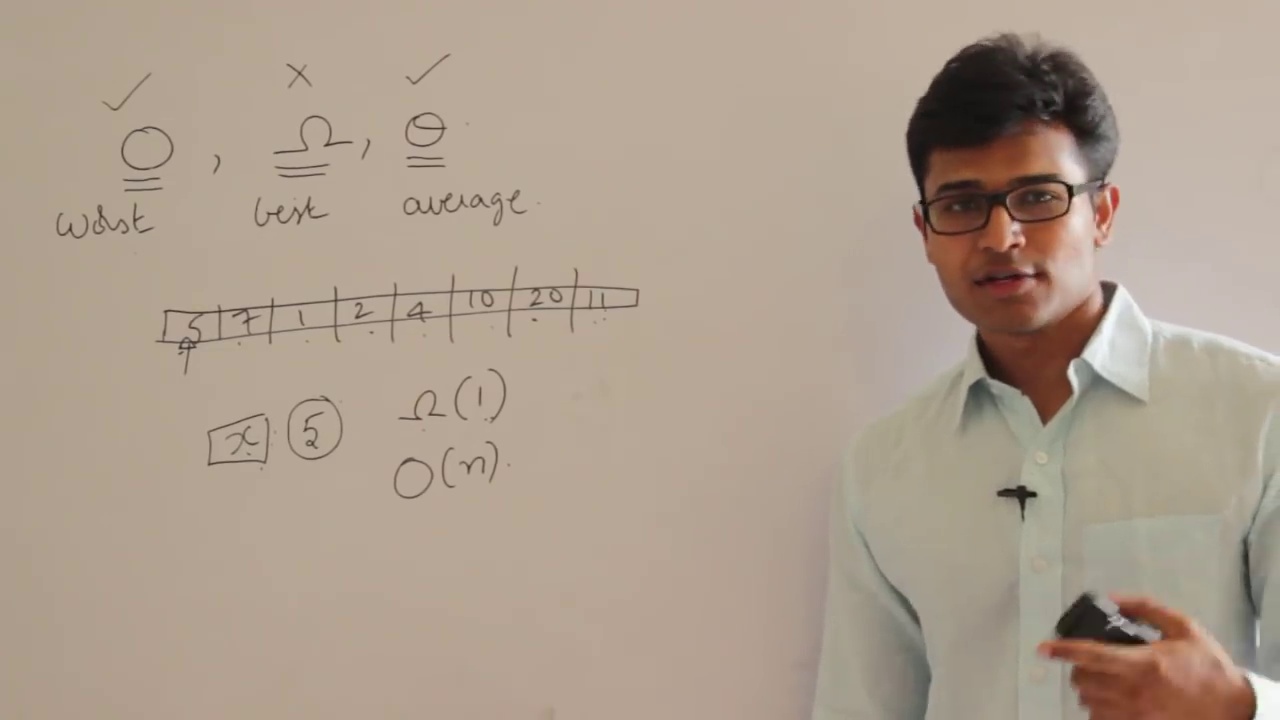 ✓ × ✓
O, Ω, Θ
worst best average.
5 7 1 2 4 10 20 11
x 5 Ω(1)
O(n).